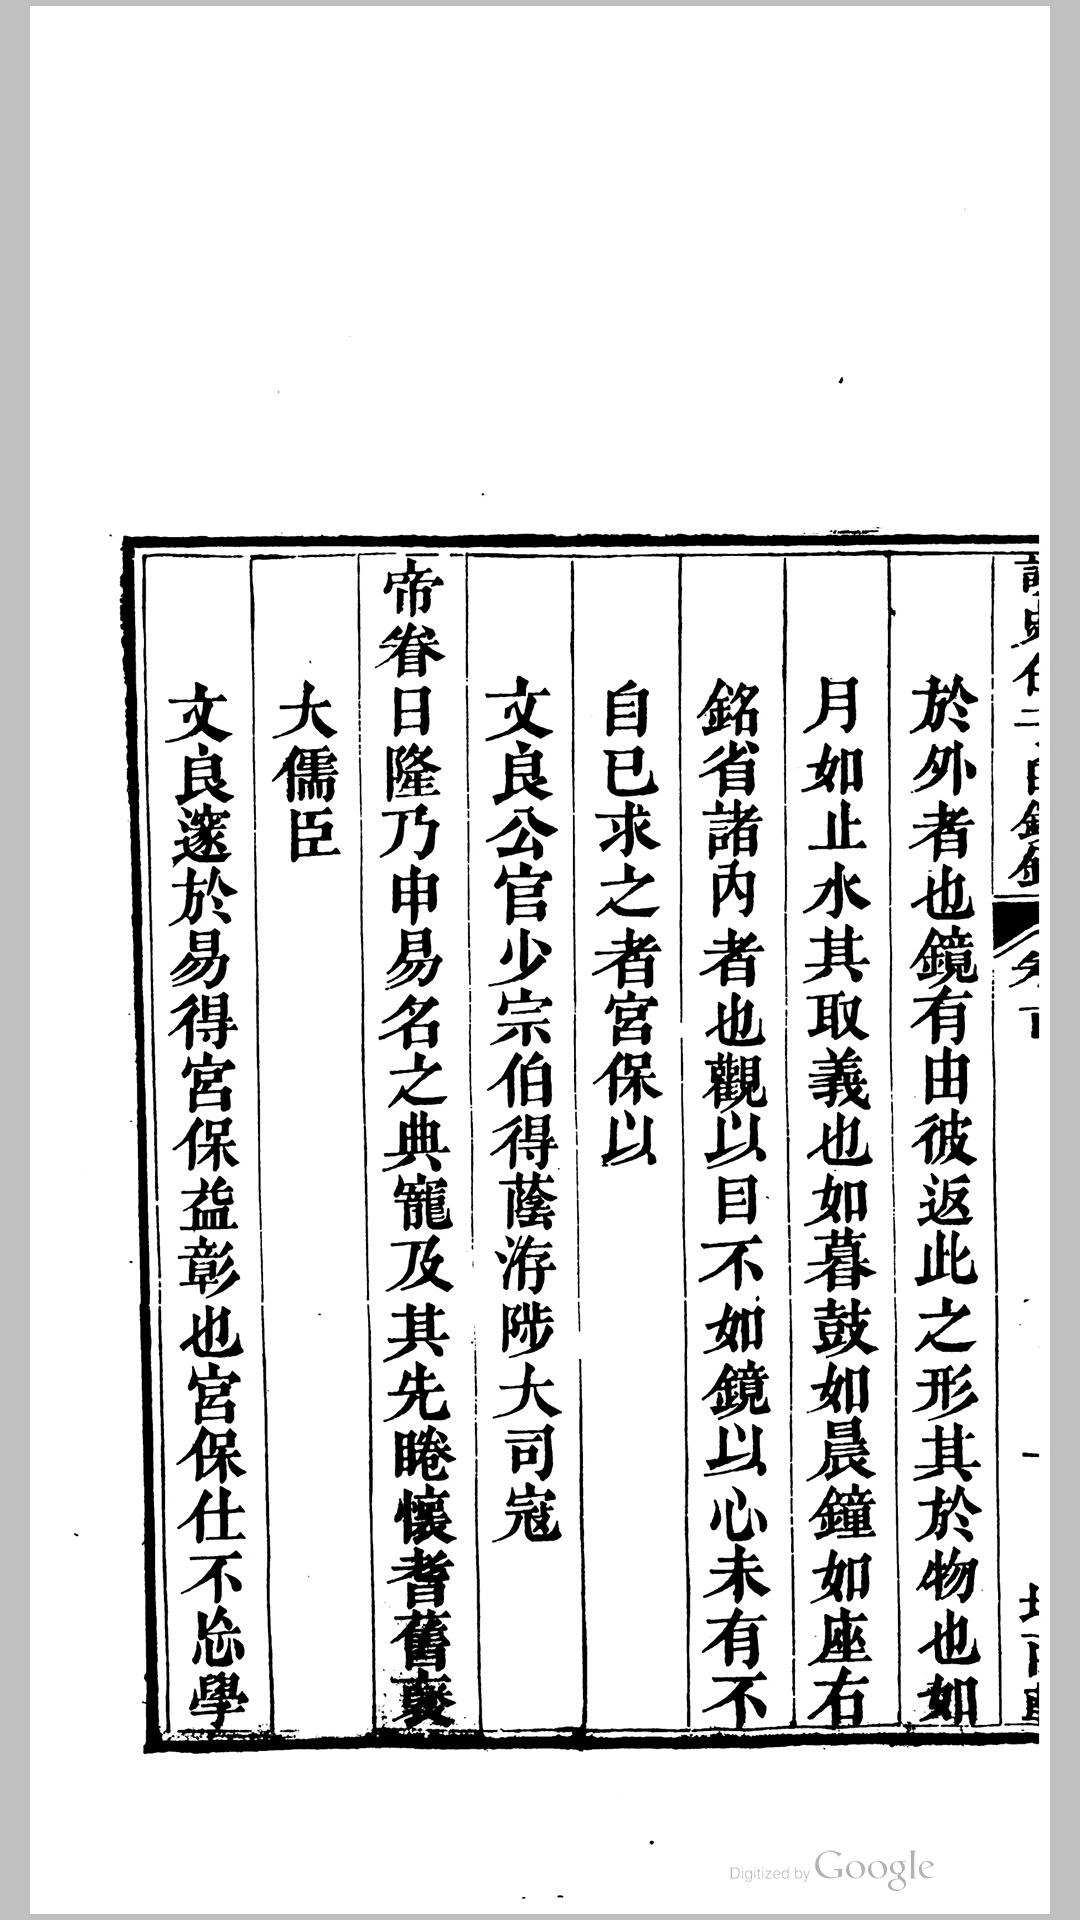 於外者也鏡有由彼返此之形其於物也如
月如止水其取義也如暮鼓如晨鐘如座右
銘省諸內者也觀以目不如鏡以心未有不
自已求之者宮保以
文良公官少宗伯得蔭洊陟大司寇
帝眷日隆乃申易名之典寵及其先睠懷耆舊褎
大儒臣
文良邃於易得宮保益彰也宮保仕不忘學
Digitized by Google